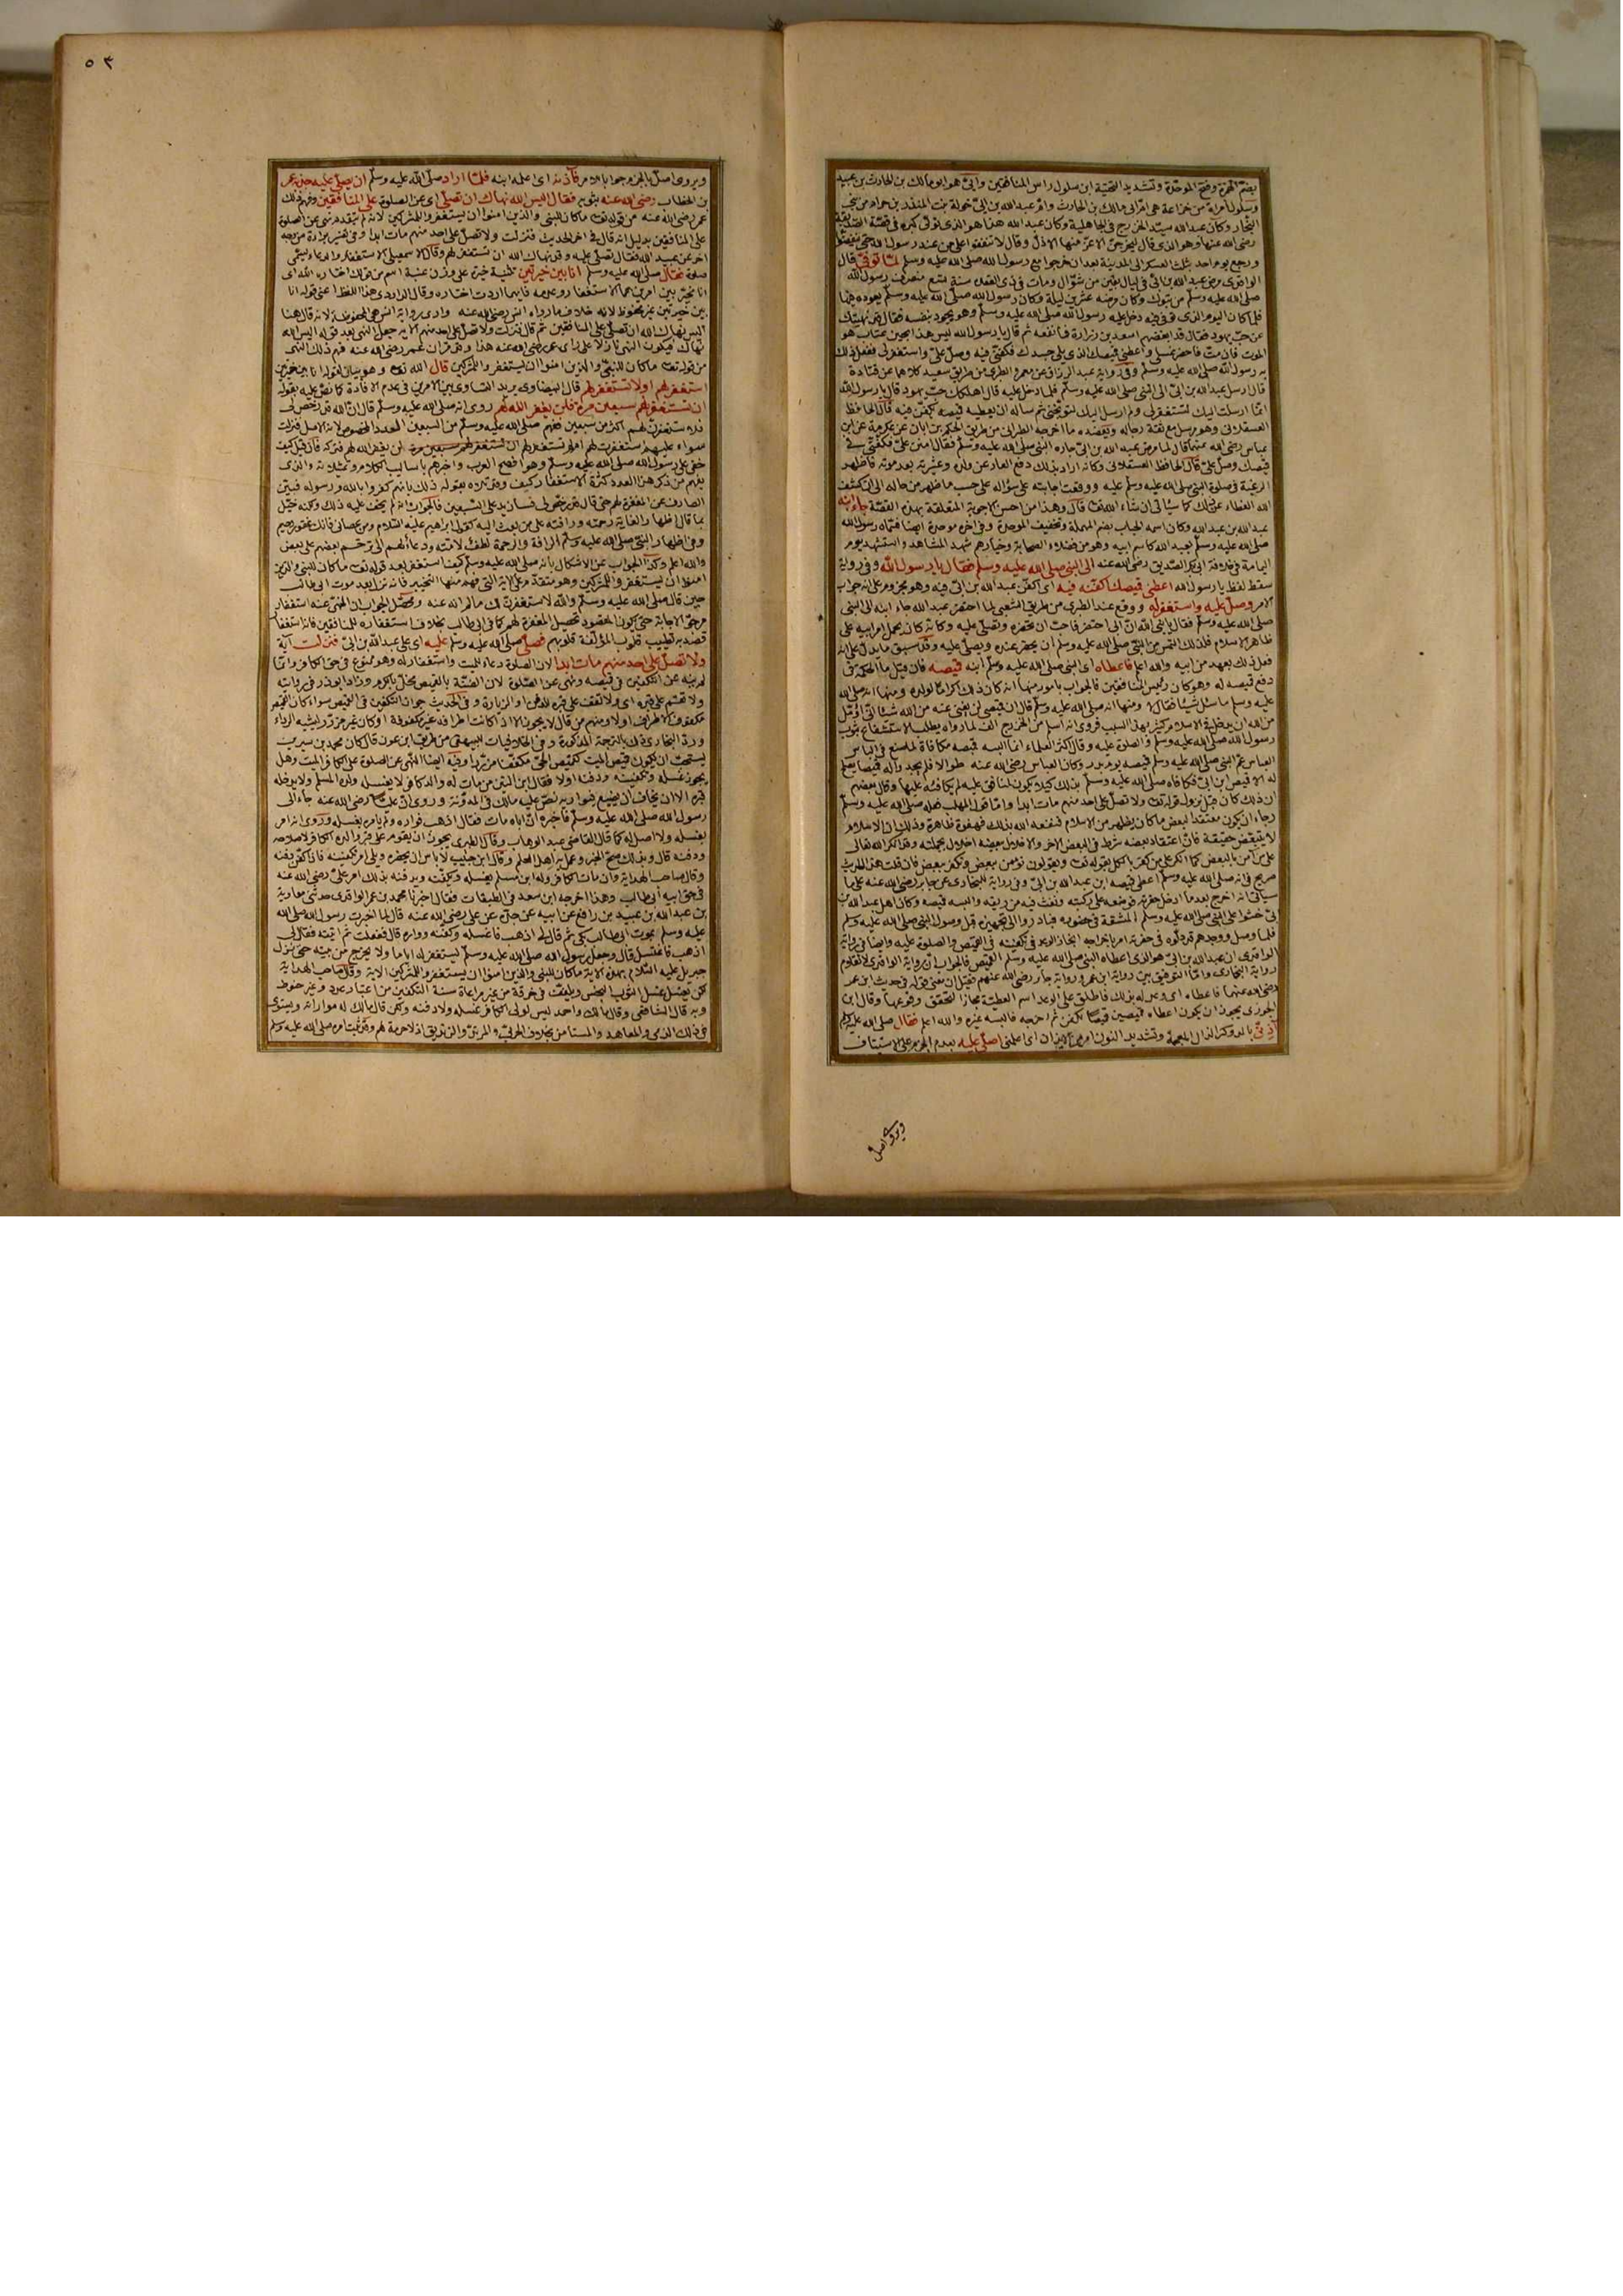 بضم الهمزة وفتح الموحدة وتشديد التحتية ابن سلول راس المنافقين وابىّ هو ابو مالك بن الحارث بن عبيد
وسلول امراة من خزاعة هى امّ ابى مالك بن الحارث وامّ عبد الله بن ابىّ خولة بنت المنذر بن حرام من بنى
النجار وكان عبد الله سيّد الخزرج فى الجاهلية وكان عبد الله هذا هو الذى تولى كبره فى قصّة الصدّيقة
رضى الله عنها وهو الذى قال ليخرجنّ الاعزّ منها الاذلّ وقال لا تنفقوا على من عند رسول الله حتى ينفضّوا
ورجع يوم احد بثلث العسكر الى المدينة بعد ان خرجوا مع رسول الله صلى الله عليه وسلم لمّا توفى قال
الواقدى مرض عبد الله بن ابىّ فى ليال بقين من شوّال ومات فى ذى القعدة سنة تسع منصرف رسول الله
صلى الله عليه وسلم من تبوك وكان مرضه عشرين ليلة وكان رسول الله صلى الله عليه وسلم يعوده فيها
فلما كان اليوم الذى توفى فيه دخل عليه رسول الله صلى الله عليه وسلم وهو يجود بنفسه فقال قد نهيتك
عن حبّ يهود فقال قد ابغضهم اسعد بن زرارة فما نفعه ثم قال يا رسول الله ليس هذا بحين عتاب هو
الموت فان متّ فاحضر غسلى واعطنى قميصك الذى يلى جسدك فكفنّى فيه وصلّ علىّ واستغفر لى ففعل ذلك
به رسول الله صلى الله عليه وسلم وفى رواية عبد الرزاق عن معمر والطبرى من طريق سعيد كلاهما عن قتادة
قال ارسل عبد الله بن ابىّ الى النبى صلى الله عليه وسلم فلما دخل عليه قال اهلكك حبّ يهود قال يا رسول الله
انما ارسلت اليك لتستغفر لى ولم ارسل اليك لتوبخنى ثم ساله ان يعطيه قميصه يكفّن فيه قال الحافظ
العسقلانى وهو مرسل مع ثقة رجاله ويعضده ما اخرجه الطبرانى من طريق الحكم بن ابان عن عكرمة عن ابن
عباس رضى الله عنهما قال لما مرض عبد الله بن ابىّ جاءه النبى صلى الله عليه وسلم فقال امنن علىّ فكفنّى فى
قميصك وصلّ علىّ قال الحافظ العسقلانى وكانه اراد بذلك دفع العار عن ولده وعشيرته بعد موته فاظهر
الرغبة فى صلوة النبى صلى الله عليه وسلم عليه ووقعت اجابته على سؤاله على حسب ما ظهر من حاله الى ان كشف
الله الغطاء عن ذلك كما سياتى ان شاء الله تعالى قال وهذا من احسن الاجوبة المتعلقة بهذه القصّة جاء ابنه
عبد الله بن عبد الله وكان اسمه الحباب بضم المهملة وتخفيف الموحدة وفى اخره موحدة ايضا فسمّاه رسول الله
صلى الله عليه وسلم بعبد الله كاسم ابيه وهو من فضلاء الصحابة وخيارهم شهد المشاهد واستشهد يوم
اليمامة فى خلافة ابى بكر الصدّيق رضى الله عنه الى النبى صلى الله عليه وسلم فقال يا رسول الله وفى رواية
سقط لفظ يا رسول الله اعطنى قميصك اكفّنه فيه اى اكفّن عبد الله بن ابىّ فيه وهو مجزوم على انه جواب
الامر وصلّ عليه واستغفر له ووقع عند الطبرى من طريق الشعبى لما احتضر عبد الله جاء ابنه الى النبى
صلى الله عليه وسلم فقال يا نبى الله انّ ابى احتضر فاحبّ ان تحضره وتصلّى عليه وكانه كان يحمل امر ابيه على
ظاهر الاسلام فلذلك التمس من النبى صلى الله عليه وسلم ان يحضر عنده ويصلّى عليه وقد سبق ما يدلّ على انه
فعل ذلك بعهد من ابيه والله اعلم فاعطاه اى النبى صلى الله عليه وسلم ابنه قميصه فان قيل ما الحكمة فى
دفع قميصه له وهو كان رئيس المنافقين فالجواب بامور منها انه كان ذلك اكراما لولده ومنها انه صلى الله
عليه وسلم ما سئل شيئا فقال لا ومنها انه صلى الله عليه وسلم قال ان قميصى لن يغنى عنه من الله شيئا انى اؤمّل
من الله ان يدخل فى الاسلام كثير بهذا السبب فروى انه اسلم من الخزرج الف لما رواه يطلب الاستشفاء بثوب
رسول الله صلى الله عليه وسلم والصلوة عليه وقال اكثر العلماء انما البسه قميصه مكافاة لما صنع فى الباس
العباس عمّ النبى صلى الله عليه وسلم قميصه يوم بدر وكان العباس رضى الله عنه طوالا فلم يجدوا له قميصا يصلح
له الا قميص ابن ابىّ فكافاه صلى الله عليه وسلم بذلك كيلا يكون لمنافق عليه يد لم يكافئه عليها وقال بعضهم
ان ذلك كان قبل نزول قوله تعالى ولا تصلّ على احد منهم مات ابدا وامّا قول المهلب فعله صلى الله عليه وسلم
رجاء ان يكون معتقدا لبعض ما كان يظهر من الاسلام فنفعه الله بذلك فهفوة ظاهرة وذلك ان الاسلام
لا يتبعّض حقيقة فانّ اعتقاد بعضه شرط فى البعض الاخر والاخلال ببعضه اخلال بجملته وقد انكر الله تعالى
على من آمن بالبعض كما انكر على من كفر بالكل بقوله تعالى ويقولون نؤمن ببعض ونكفر ببعض فان قلت هذا الحديث
صريح فى انه صلى الله عليه وسلم اعطى قميصه ابن عبد الله بن ابىّ وفى رواية للبخارى عن جابر رضى الله عنه على ما
سياتى انه اخرج بعد ما ادخل حفرته فوضعه على ركبتيه ونفث فيه من ريقه والبسه قميصه وكان اهل عبد الله بن
ابىّ خشوا على النبى صلى الله عليه وسلم المشقة فى حضوره فبادروا الى تجهيزه قبل وصول النبى صلى الله عليه وسلم
فلما وصل ووجدهم قد دلّوه فى حفرته امر باخراجه انجازا لوعده فى تكفينه فى القميص والصلوة عليه وايضا فى رواية
الواقدى ان عبد الله بن ابىّ هو الذى اعطاه النبى صلى الله عليه وسلم القميص فالجواب انّ رواية الواقدى لا تقاوم
رواية البخارى وامّا التوفيق بين رواية ابن عمر ورواية جابر رضى الله عنهم فقيل ان معنى قوله فى حديث ابن عمر
رضى الله عنهما فاعطاه اى وعد له بذلك فاطلق على الوعد اسم العطيّة مجازا لتحقق وقوعها وقال ابن
الجوزى يجوز ان يكون اعطاه قميصين قميصا للكفن ثم اخرجه فالبسه غيره والله اعلم فقال صلى الله عليه وسلم
آذنّى بالمد وكسر الذال المعجمة وتشديد النون امر من الايذان اى اعلمنى اصلّى عليه بعدم الجزم على الاستيناف
ويروى اصلّ
٥٣
ويروى اصلّ بالجزم جوابا بالامر فآذنه اى اعلمه ابنه فلمّا اراد صلى الله عليه وسلم ان يصلّى عليه جذبه عمر
بن الخطاب رضى الله عنه بثوبه فقال اليس الله نهاك ان تصلّى اى عن الصلوة على المنافقين وفهم ذلك
عمر رضى الله عنه من قوله تعالى ما كان للنبى والذين امنوا ان يستغفروا للمشركين لانه لم يتقدم نهى عن الصلوة
على المنافقين بدليل انه قال فى اخر الحديث فنزلت ولا تصلّ على احد منهم مات ابدا وفى تفسير براءة من وجه
اخر عن عبيد الله فقال تصلّى عليه وقد نهاك الله ان تستغفر لهم وقال الاسمعيلى الاستغفار والدعاء يسمّى
صلوة فقال صلى الله عليه وسلم انا بين خيرتين تثنية خيرة على وزن عنبة اسم من قولك اختاره الله اى
انا مخيّر بين امرين هما الاستغفار وعدمه فايهما اردت اختاره وقال الداودى هذا اللفظ اعنى قوله انا
بين خيرتين غير محفوظ لانه خلاف ما رواه انس رضى الله عنه وارى رواية انس هى المحفوظة لانه قال هنا
اليس نهاك الله ان تصلّى على المنافقين ثم قال فنزلت ولا تصلّ على احد منهم الاية جعل النهى بعد قوله اليس الله
نهاك فيكون النهى نازلا على راى عمر رضى الله عنه هذا وقد قرّر ان عمر رضى الله عنه فهم ذلك النهى
من قوله تعالى ما كان للنبى والذين امنوا ان يستغفروا للمشركين قال الله تعالى وهو بيان لقوله انا بين خيرتين
استغفر لهم او لا تستغفر لهم قال البيضاوى يريد التساوى بين الامرين فى عدم الافادة كما نصّ عليه بقوله
ان تستغفر لهم سبعين مرة فلن يغفر الله لهم روى انه صلى الله عليه وسلم قال انّ الله قد رخص لى
فلاستغفرنّ لهم اكثر من سبعين ففهم صلى الله عليه وسلم من السبعين العدد المخصوص لانه الاصل فنزلت
سواء عليهم استغفرت لهم ام لم تستغفر لهم ان تستغفر لهم سبعين مرة لن يغفر الله لهم فتركه فان قيل كيف
خفى على رسول الله صلى الله عليه وسلم وهو افصح العرب واخبرهم باساليب الكلام وتمثيلاته والذى
يفهم من ذكر هذا العدد كثرة الاستغفار كيف وقد تلاه بقوله ذلك بانهم كفروا بالله ورسوله فبيّن
الصارف عن المغفرة لهم حتى قال قد رخص لى فسازيد على السبعين فالجواب انه لم يخف عليه ذلك ولكنه خيّل
بما قال اظهارا لغاية رحمته ورافته على من بعث اليه كقول ابراهيم عليه السّلام ومن عصانى فانك غفور رحيم
وفى اظهار النبى صلى الله عليه وسلم الرافة والرحمة لطف لامّته ودعاء لهم الى ترحّم بعضهم على بعض
والله اعلم وكذا الجواب عن الاشكال بانه صلى الله عليه وسلم كيف استغفر بعد قوله تعالى ما كان للنبى والذين
امنوا ان يستغفروا للمشركين وهو متقدم على الاية التى فهم منها التخيير فانه نزل بعد موت ابى طالب
حين قال صلى الله عليه وسلم والله لاستغفرنّ لك ما لم انه عنه ومحصّل الجواب ان المنهىّ عنه استغفار
مرجوّ الاجابة حتى يكون المقصود تحصيل المغفرة لهم كما فى ابى طالب بخلاف استغفاره للمنافقين فانه استغفار
قصد به تطييب قلوب المؤلّفة قلوبهم فصلّى صلى الله عليه وسلم عليه اى على عبد الله بن ابىّ فنزلت آية
ولا تصلّ على احد منهم مات ابدا لان الصلوة دعاء للميت واستغفار له وهو ممنوع فى حق الكافر وانما
لم ينه عن التكفين فى قميصه ونهى عن الصّلوة لان الضنّة بالقميص مخلّ بالكرم وزاد ابو ذر فى روايته
ولا تقم على قبره اى ولا تقف على قبره للدفن او الزيارة وفى الحديث جواز التكفين فى القميص سواء كان القميص
مكفوف الاطراف او لا ومنهم من قال لا يجوز الا اذا كانت اطرافه غير مكفوفة او كان غير مزرّر ليشبه الرداء
وردّ البخارى ذلك بالترجمة المذكورة وفى الخلافيات للبيهقى من طريق ابن عون قال كان محمد بن سيرين
يستحبّ ان يكون قميص الميت كقميص الحىّ مكففا مزررا وفيه ايضا النّهى عن الصلوة على الكافر الميت وهل
يجوز غسله وتكفينه ودفنه او لا فقال ابن التين من مات له والد كافر لا يغسله ولده المسلم ولا يدخله
قبره الا ان يخاف ان يضيع فيواريه نصّ عليه مالك فى المدوّنة وروى انّ عليا رضى الله عنه جاء الى
رسول الله صلى الله عليه وسلم فاخبره انّ اباه مات فقال اذهب فواره ولم يامره بغسله وروى انه امر
بغسله ولا اصل له كما قال القاضى عبد الوهاب وقال الطبرى يجوز ان يقوم على قبر والده الكافر لاصلاحه
ودفنه قال وبذلك صحّ الخبر وعمل به اهل العلم وقال ابن حبيب لا باس ان يحضره ويلى امر تكفينه فاذا كفن دفنه
وقال صاحب الهداية وان مات الكافر وله ابن مسلم يغسله ويكفّنه ويدفنه بذلك امر علىّ رضى الله عنه
فى حق ابيه ابى طالب وهذا اخرجه ابن سعد فى الطبقات فقال اخبرنا محمد بن عمر الواقدى حدثنى معاوية
بن عبد الله بن عبيد بن رافع عن ابيه عن جدّه عن على رضى الله عنه قال لما اخبرت رسول الله صلى الله
عليه وسلم بموت ابى طالب بكى ثم قال لى اذهب فاغسله وكفّنه وواره قال ففعلت ثم اتيته فقال لى
اذهب فاغتسل قال وجعل رسول الله صلى الله عليه وسلم يستغفر له اياما ولا يخرج من بيته حتى نزل
جبريل عليه السّلام بهذه الاية ما كان للنبى والذين امنوا ان يستغفروا للمشركين الاية وقال صاحب الهداية
لكن يغسل غسل الثوب النجس ويلفّ فى خرقة من غير مراعاة سنة التكفين من اعتبار عدد وغير حنوط
وبه قال الشافعى وقال مالك واحمد ليس لولى الكافر غسله ولا دفنه ولكن قال مالك له مواراته ويستوى
فى ذلك الذمى والمعاهد والمستامن بخلاف الحربىّ والمرتدّ والزنديق اذ لا حرمة لهم وقد ثبت امره صلى الله عليه وسلم